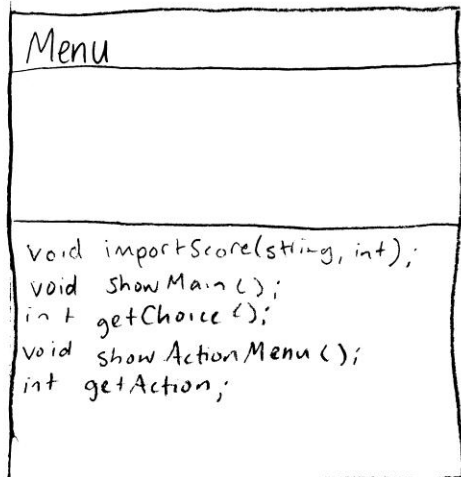 Menu
void importScore(string, int);
void showMain();
int getChoice();
void showActionMenu();
int getAction;